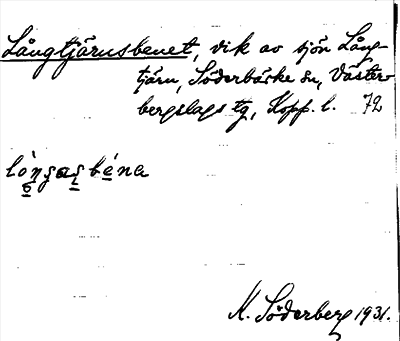 Långtjärnsbenet, vik av sjön Lång-
tjärn, Söderbärke sn, Väster
bergslags tg, Kopp. l. 72
lónsasbéna
K. Söderberg 1931.